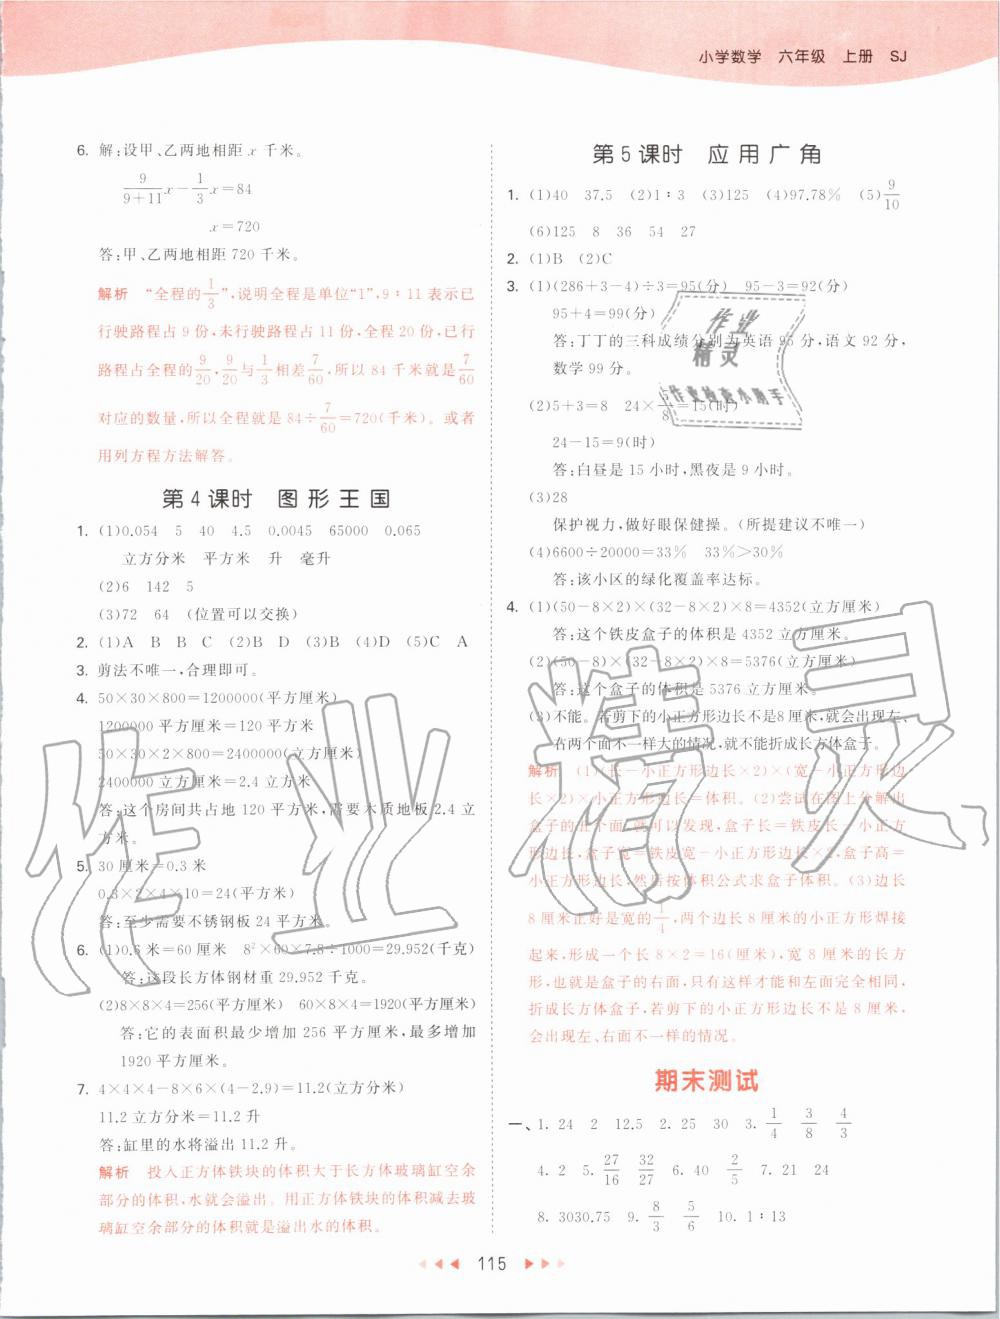 小学数学 六年级 上册 SJ
6. 解:设甲、乙两地相距 x 千米。
9/(9+11)x－1/3x＝84
x＝720
答:甲、乙两地相距 720 千米。
解析 “全程的1/3”,说明全程是单位“1”,9∶11 表示已
行驶路程占 9 份,未行驶路程占 11 份,全程 20 份,已行
路程占全程的9/20,9/20与1/3相差7/60,所以 84 千米就是7/60
对应的数量,所以全程就是 84÷7/60＝720(千米)。或者
用列方程方法解答。
第 4 课时 图形王国
1. (1)0.054 5 40 4.5 0.0045 65000 0.065
立方分米 平方米 升 毫升
(2)6 142 5
(3)72 64 (位置可以交换)
2. (1)A B B C (2)B D (3)B (4)B (5)C A
3. 剪法不唯一,合理即可。
4. 50×30×800＝1200000(平方厘米)
1200000 平方厘米＝120 平方米
50×30×2×800＝2400000(立方厘米)
2400000 立方厘米＝2.4 立方米
答:这个房间共占地 120 平方米,需要木质地板 2.4 立
方米。
5. 30 厘米＝0.3 米
0.3×2×4×10＝24(平方米)
答:至少需要不锈钢板 24 平方米。
6. (1)0.6 米＝60 厘米 8²×60×7.8÷1000＝29.952(千克)
答:这段长方体钢材重 29.952 千克。
(2)8×8×4＝256(平方厘米) 60×8×4＝1920(平方厘米)
答:它的表面积最少增加 256 平方厘米,最多增加
1920 平方厘米。
7. 4×4×4－8×6×(4－2.9)＝11.2(立方分米)
11.2 立方分米＝11.2 升
答:缸里的水将溢出 11.2 升。
解析 投入正方体铁块的体积大于长方体玻璃缸空余
部分的体积,水就会溢出。用正方体铁块的体积减去玻
璃缸空余部分的体积就是溢出水的体积。
第 5 课时 应用广角
1. (1)40 37.5 (2)1∶3 (3)125 (4)97.78% (5)9/10
(6)125 8 36 54 27
2. (1)B (2)C
3. (1)(286＋3－4)÷3＝95(分) 95－3＝92(分)
95＋4＝99(分)
答:丁丁的三科成绩分别为英语 95 分,语文 92 分,
数学 99 分。
(2)5＋3＝8 24×5/8＝15(时)
24－15＝9(时)
答:白昼是 15 小时,黑夜是 9 小时。
(3)28
保护视力,做好眼保健操。(所提建议不唯一)
(4)6600÷20000＝33% 33%>30%
答:该小区的绿化覆盖率达标。
4. (1)(50－8×2)×(32－8×2)×8＝4352(立方厘米)
答:这个铁皮盒子的体积是 4352 立方厘米。
(2)(50－8)×(32－8×2)×8＝5376(立方厘米)
答:这个盒子的体积是 5376 立方厘米。
(3)不能。若剪下的小正方形边长不是8厘米,就会出现左、
右两个面不一样大的情况,就不能折成长方体盒子。
解析 (1)(长－小正方形边长×2)×(宽－小正方形边
长×2)×小正方形边长＝体积。(2)尝试在图上分解出
盒子的五个面,就可以发现,盒子长＝铁皮长－小正方
形边长,盒子宽＝铁皮宽－小正方形边长×2,盒子高＝
小正方形边长,然后按体积公式求盒子体积。(3)边长
8 厘米正好是宽的1/4,两个边长 8 厘米的小正方形焊接
起来,形成一个长 8×2＝16(厘米),宽 8 厘米的长方
形,也就是盒子的右面,只有这样才能和左面完全相同,
折成长方体盒子,若剪下的小正方形边长不是 8 厘米,
会出现左、右面不一样的情况。
期末测试
一、1. 24 2 12.5 2. 25 30 3. 1/4 3/8 4/3
4. 2 5. 27/16 32/27 6. 40 2/5 7. 21 24
8. 3030.75 9. 8/3 5/6 10. 1∶13
115
作业
精灵
作业检查小助手
作业精灵